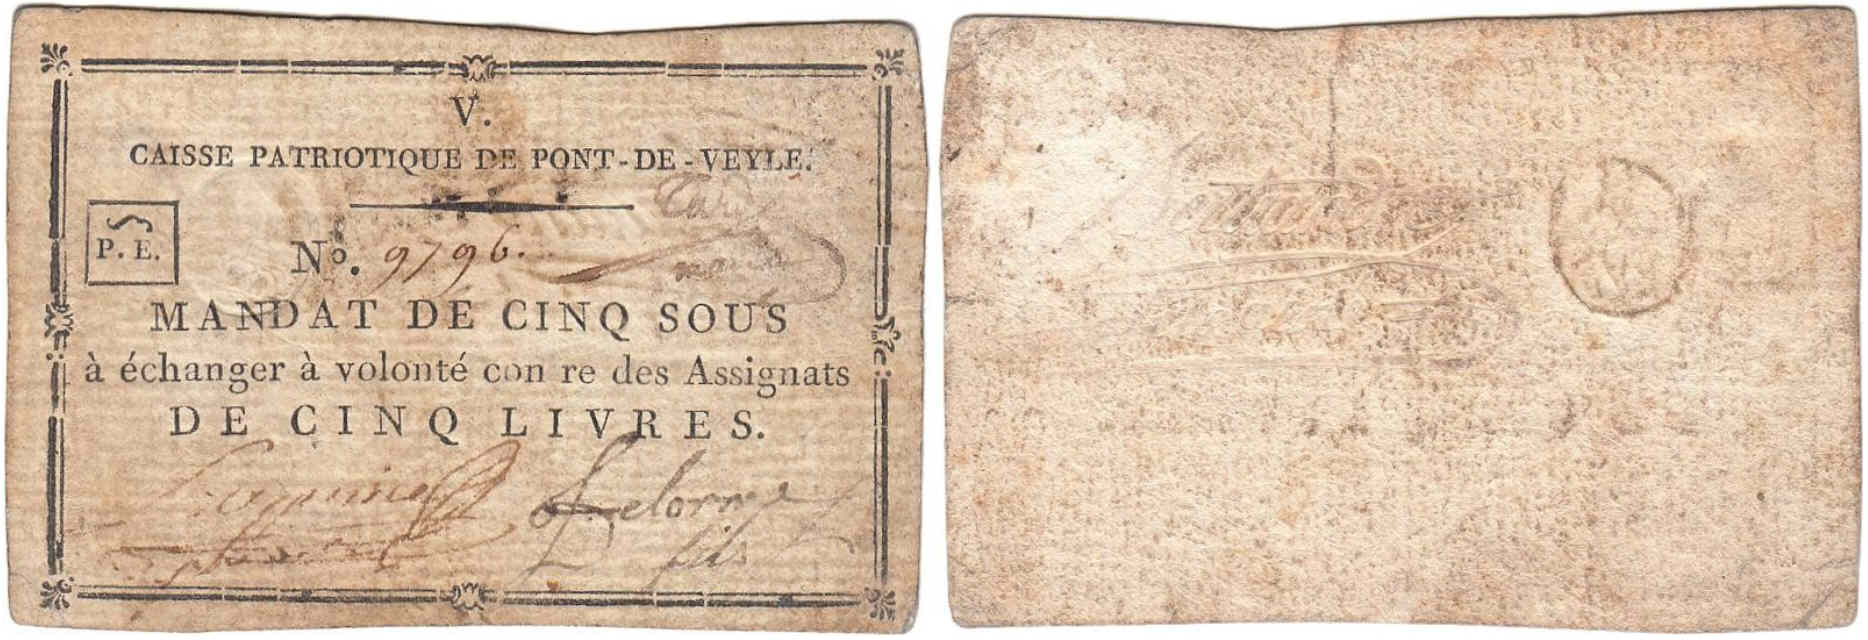 V.
CAISSE PATRIOTIQUE DE PONT-DE-VEYLE.
P. E.
Nº. 9796.
MANDAT DE CINQ SOUS
à échanger à volonté con re des Assignats
DE CINQ LIVRES.
Delorme
fils